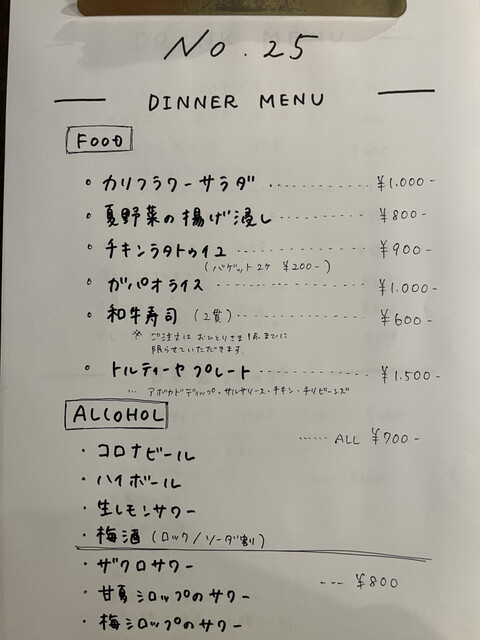 No. 25
DINNER MENU
FOOD
・カリフラワーサラダ ............ ¥1.000-
・夏野菜の揚げ浸し ............ ¥800-
・チキンラタトゥイユ ............ ¥900-
(バゲット2ケ ¥200-)
・ガパオライス ............ ¥1.000-
・和牛寿司 (2貫) ............ ¥600-
※ ご注文は おひとりさま 1点までに
限らせていただきます
・トルティーヤプレート ............ ¥1.500-
... アボカドディップ・サルサソース・チキン・チリビーンズ
ALCOHOL
...... ALL ¥700-
・コロナビール
・ハイボール
・生レモンサワー
・梅酒 (ロック/ソーダ割)
・ザクロサワー
--- ¥800
・甘夏シロップのサワー
・梅シロップのサワー